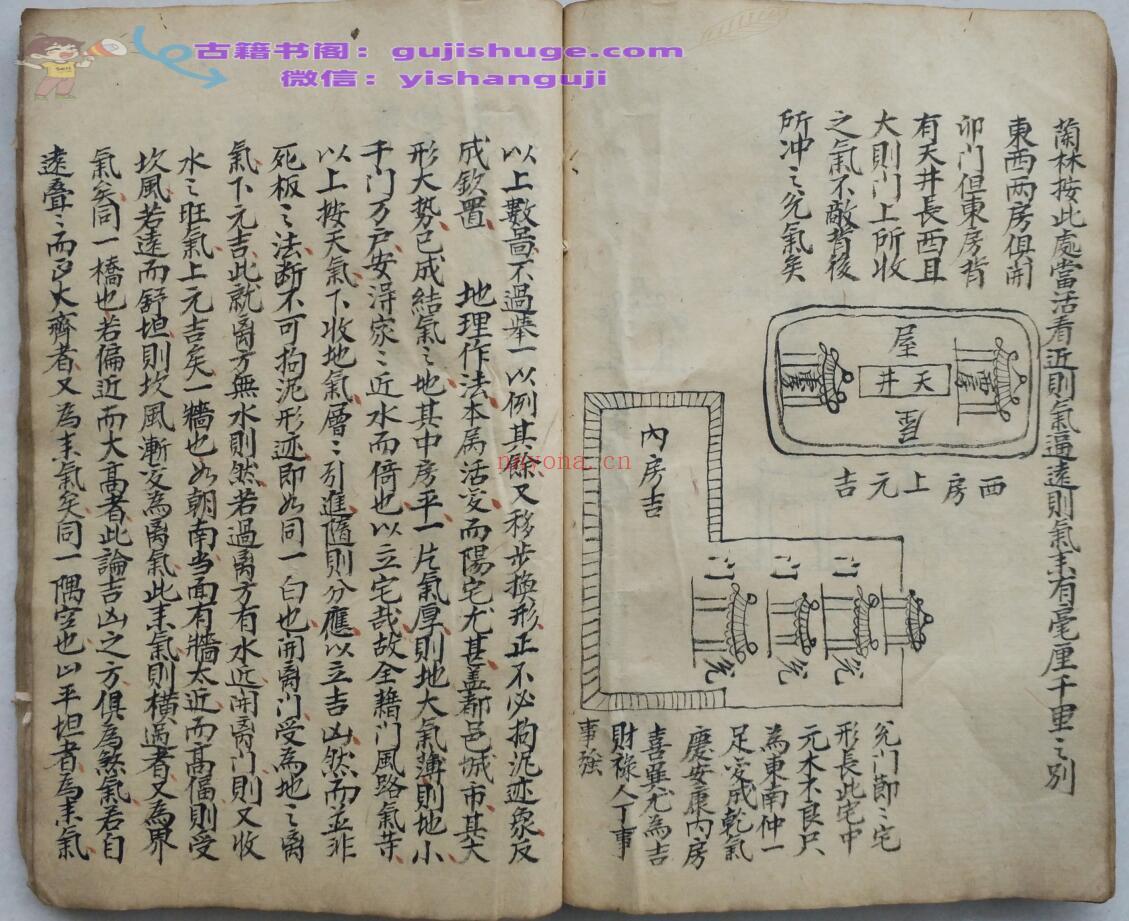 古籍书阁：gujishuge.com
微信：yishanguji
蘭林按此處當活看近則氣逼遠則氣耒有毫厘千里之别
東西两房俱開
卯门但東房背
有天井長西且
大則门上所收
之氣不敵背後
所冲之煞氣矣
屋
天井
西房上元吉
內房吉
兑门節々宅
形長此宅中
元木不良尺
為東南仲一
足变成乾氣
慶安康內房
喜巽尤為吉
財禄人丁事
事強
以上數啚不過舉一以例其餘又移步換形正不必拘泥迹象反
成欽置　地理作法本属活变而陽宅尤甚盖都邑城市其大
形大势已成結氣之地其中房平一片氣厚則地大氣薄則地小
千门万户安淂家々近水而倚也以立宅哉故全藉门風路氣寺
以上按天氣下收地氣層々引進隨則分應以立吉凶然而並非
死板之法断不可拘泥形迹即如同一白也開离门受為地之离
氣下元吉此就离方無水則然若過离方有水近開离门則又收
水之旺氣上元吉矣一牆也如朝南当面有牆太近而高偪則受
坎風若遠而舒坦則坎風漸变為离氣此耒氣則横過者又為界
氣矣同一橋也若偏近而大高者此論吉凶之方俱為煞氣若自
遠叠々而大齊者又為耒氣矣同一隅空也平坦者為耒氣
nayona.cn